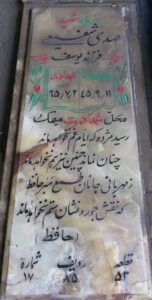 شهید
مهدی شفیعی
فرزند یوسف
شهادت
۶۵/۷/۲ ۴۵/۹/۱۱
محل شهادت مهران
رسید مژده که ایام غم نخواهد ماند
چنان نماند چنین نیز هم نخواهد ماند
ز مهربانی جانان طمع مبر حافظ
که نقش جور و نشان ستم نخواهد ماند
(حافظ)
قطعه ردیف شماره
۵۳ ۸۵ ۱۷